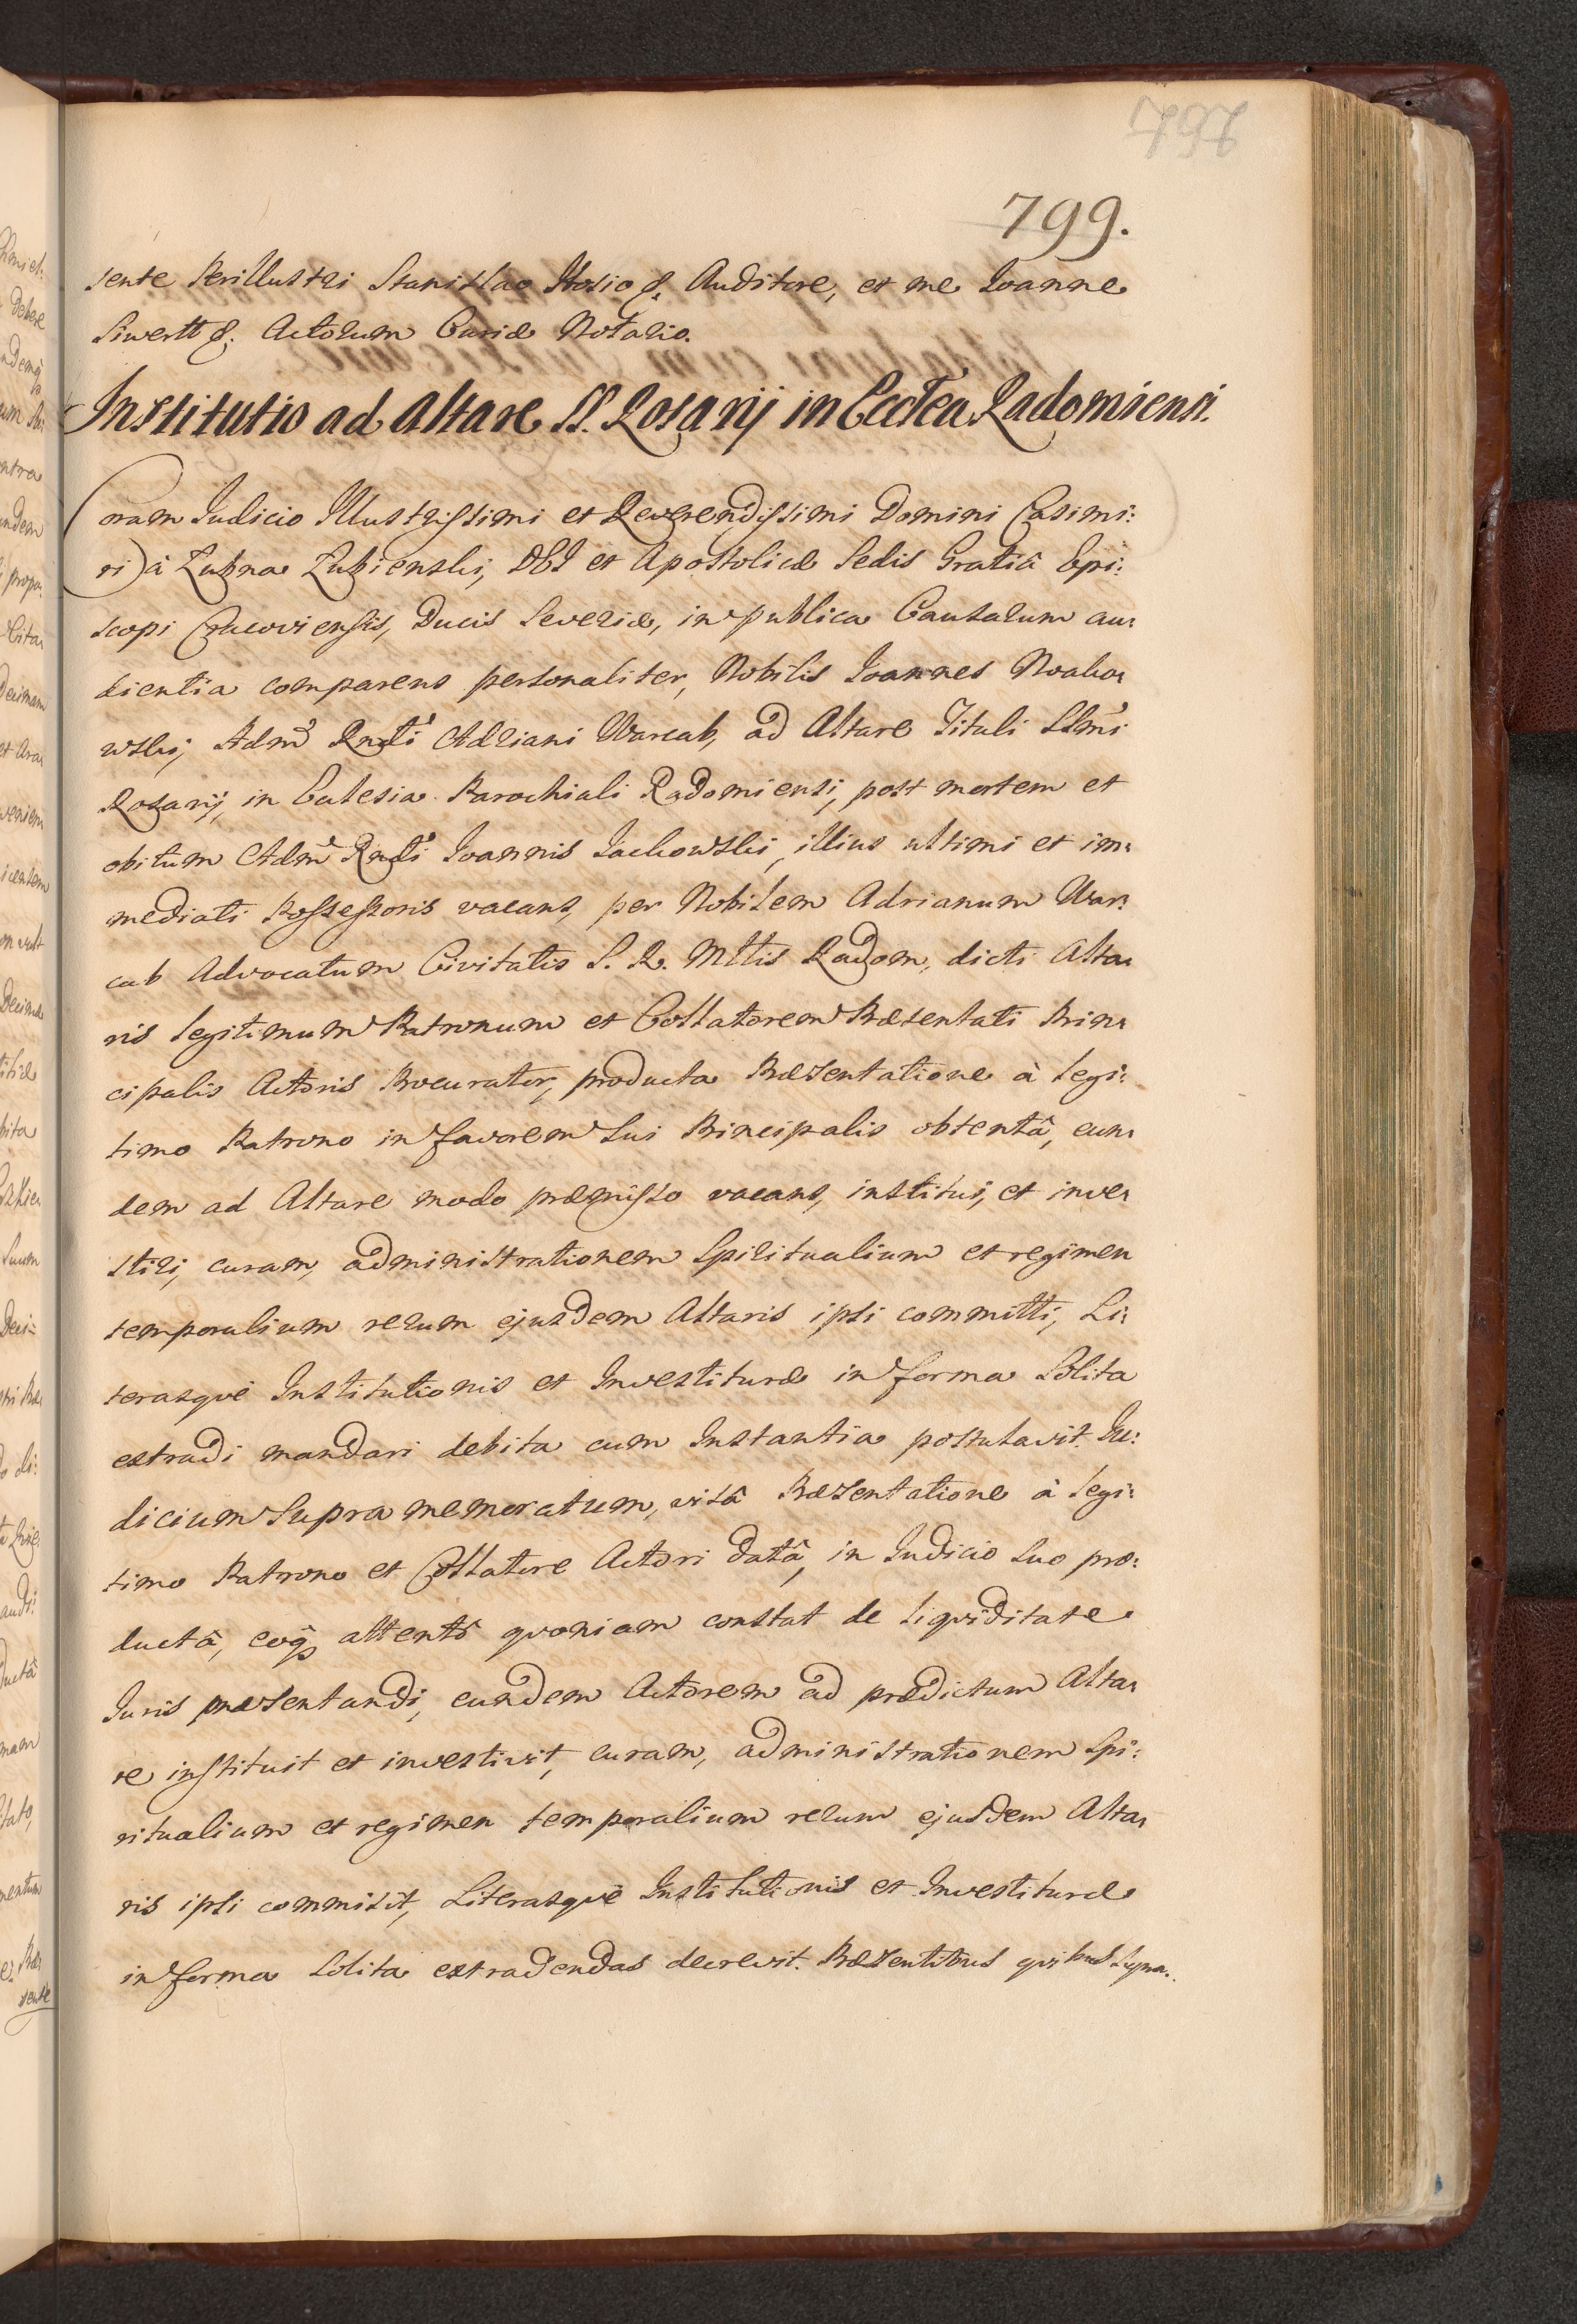 799.
sente Perillustri Stanislao Hosio &. Auditore, et me Joanne
Siwertt &. Actorum Curiæ Notario.
Institutio ad Altare SS. Rosarij in Eccl̃ea Radomiensi.
Coram Judicio Illustrissimi et Reverendissimi Domini Casimi:
ri à Łubna Łubienski, DEI et Apostolicæ Sedis Gratiâ Epi:
scopi Cracoviensis, Ducis Severiæ, in publica Causarum au:
dientia comparens personaliter, Nobilis Joannes Noako:
wski, Adm̃ Rndi Adriani Warcab, ad Altare Tituli SSmi
Rosarij, in Ecclesia Parochiali Radomiensi, post mortem et
obitum Adm̃ Rndi Joannis Jachowski, illius ultimi et im:
mediati Possessoris vacans, per Nobilem Adrianum War:
cab Advocatum Civitatis S. R. Mttis Radom, dicti Alta:
ris legitimum Patronum et Collatorem Præsentati Prin:
cipalis Actoris Procurator, producta Præsentatione à legi:
timo Patrono in favorem sui Principalis obtentâ, eun:
dem ad Altare modo præmisso vacans, institui, et inve:
stiri, curam, administrationem Spiritualium et regimen
temporalium rerum ejusdem Altaris ipsi committi, Li:
terasquè Institutionis et Investituræ in forma Solita
extradi mandari debita cum Instantia postulavit. Ju:
dicium Supra memoratum, visâ Præsentatione à legi:
timo Patrono et Collatore Actori datâ, in Judicio suo pro:
ductâ, eoq̃ attentô quoniam constat de liquiditate
Juris præsentandi, eundem Actorem ad prædictum Alta:
re instituit et investivit, curam, administrationem Spi:
ritualium et regimen temporalium rerum ejusdem Alta:
ris ipsi commisit, Literasquè Institutionis et Investituræ
in forma Solita extradendas decrevit. Præsentibus quibus supra.